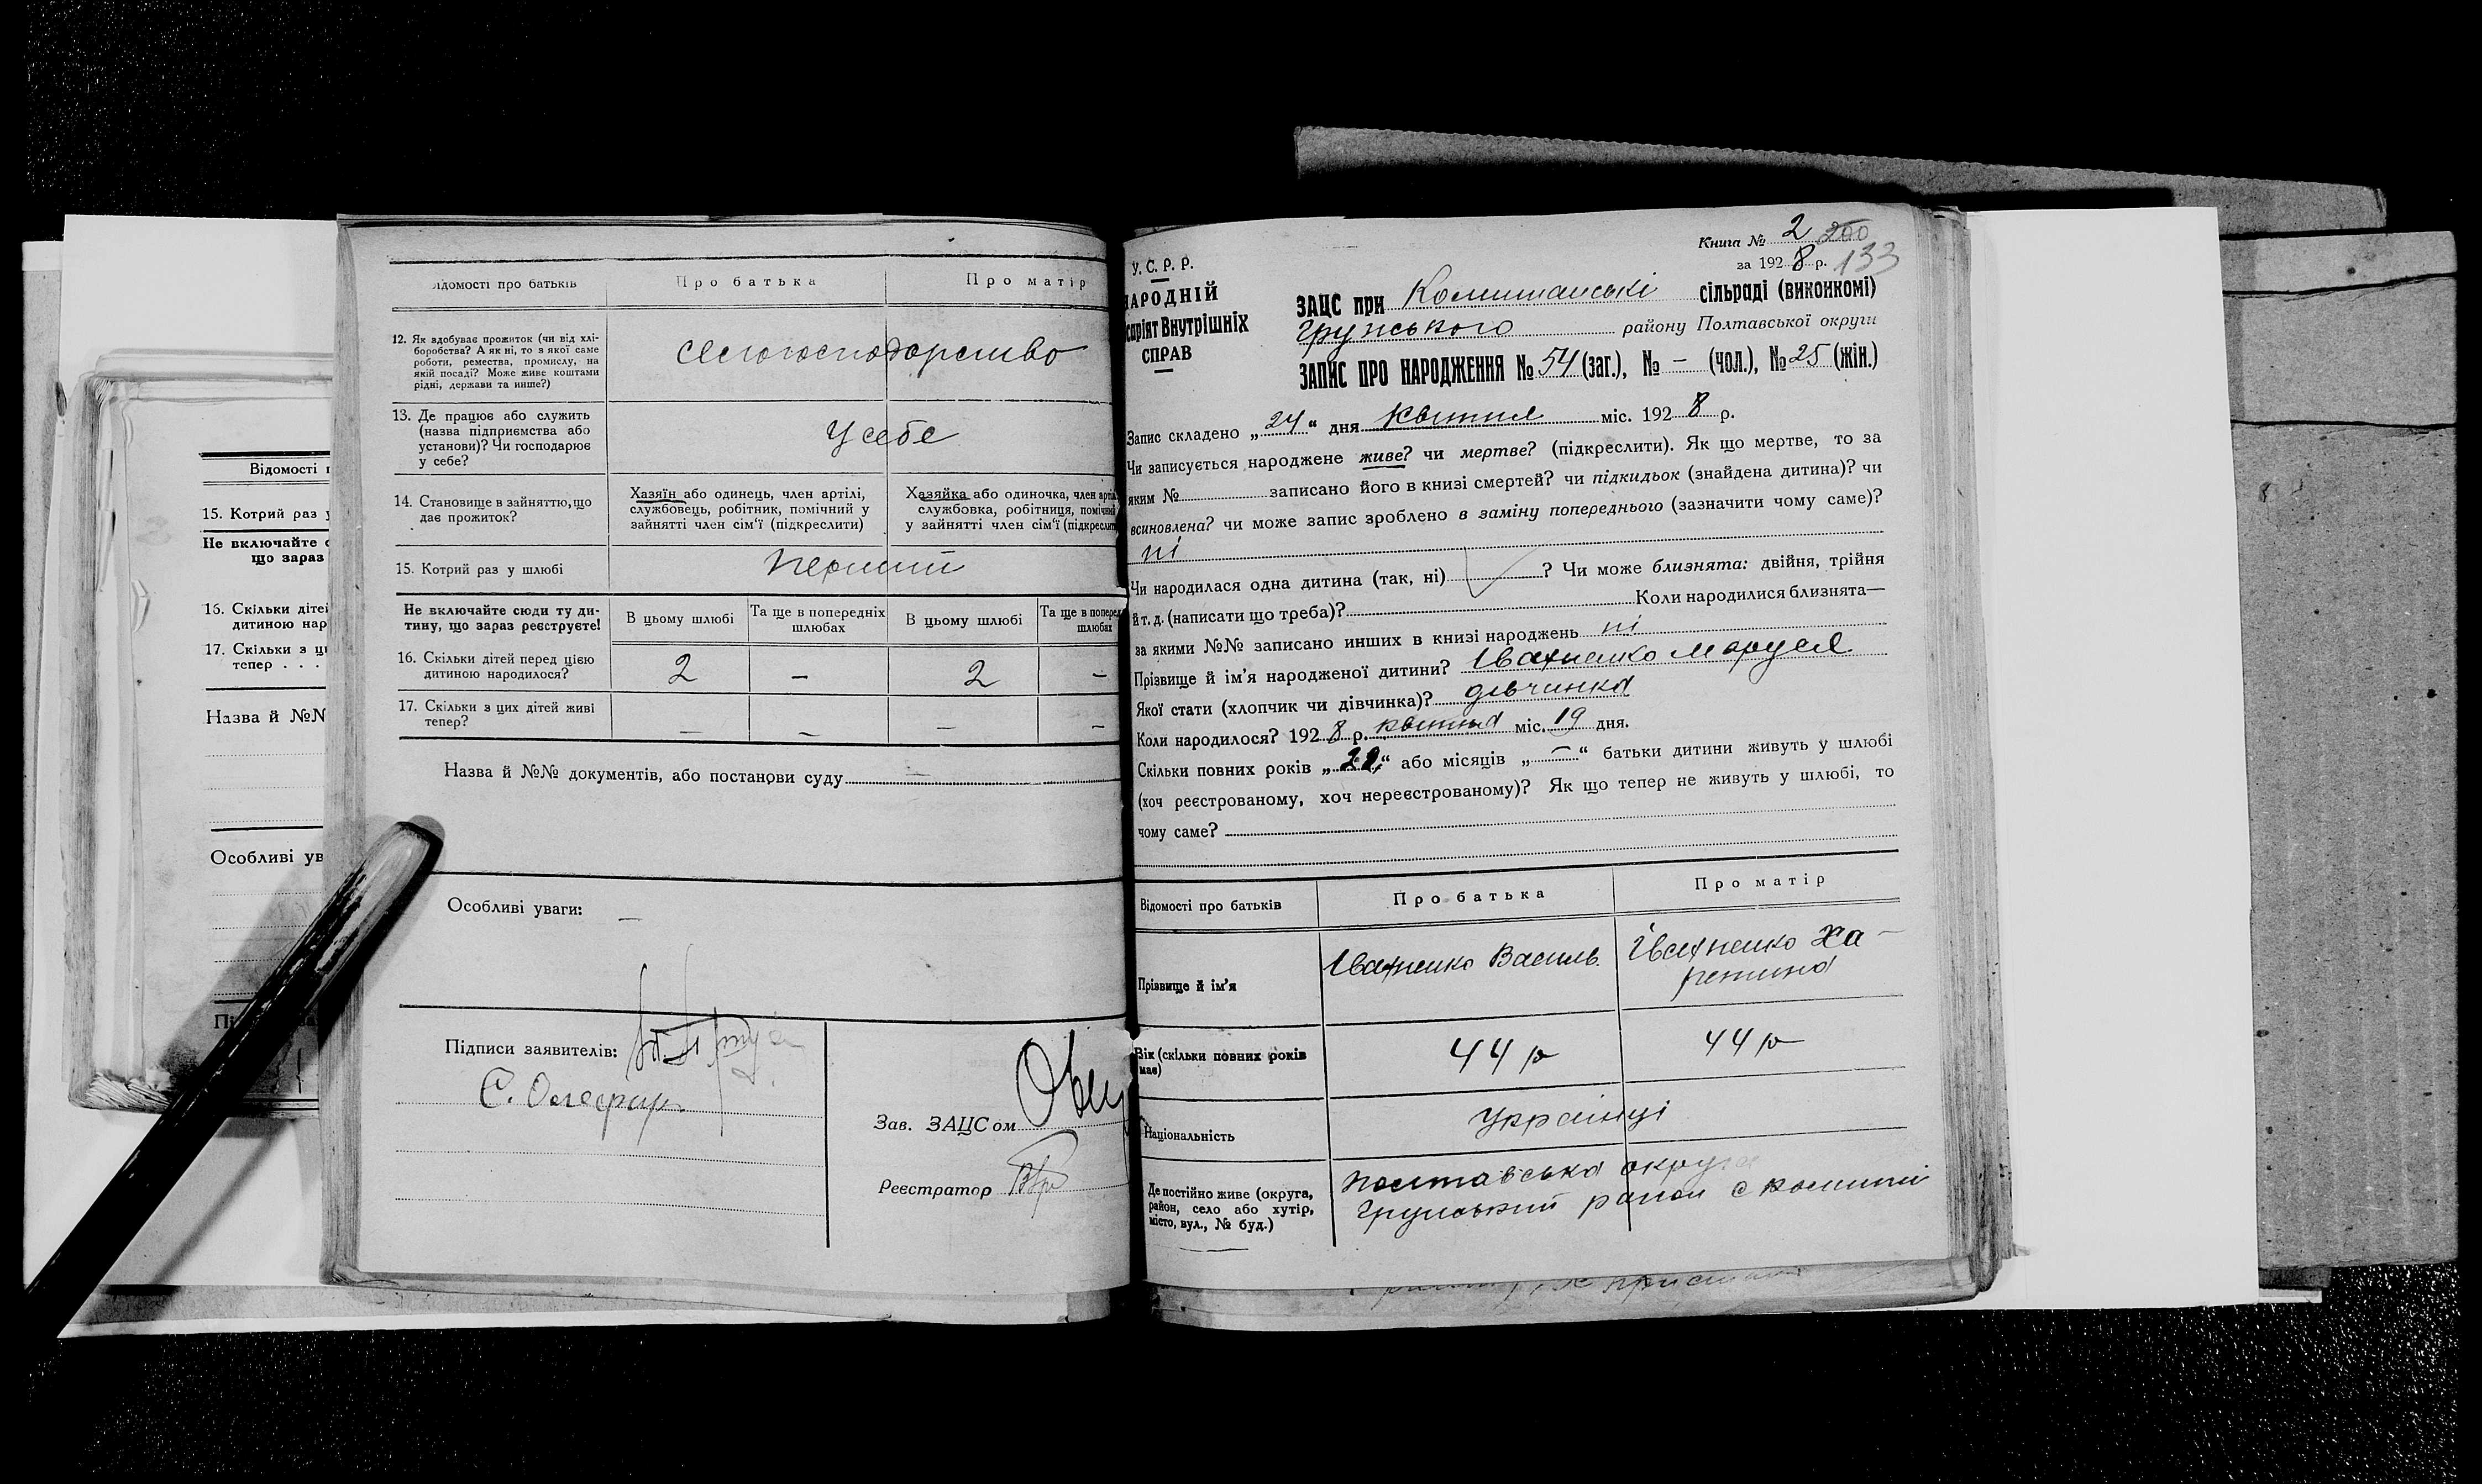 Відомості п
15. Котрий раз у
Не включайте с
що зараз
16. Скільки дітей
дитиною нар
17. Скільки з ци
тепер . . .
Назва й №№
Особливі ув
Пі
ідомості про батьків
Про батька
Про матір
12. Як здобуває прожиток (чи від хлі-
боробства? А як ні, то з якої саме
роботи, ремества, промислу, на
якій посаді? Може живе коштами
рідні, держави та инше?)
13. Де працює або служить
(назва підприємства або
установи)? Чи господарює
у себе?
у себе
14. Становище в зайняттю, що
дає прожиток?
Хазяїн або одинець, член артілі,
службовець, робітник, помічний у
зайнятті член сім'ї (підкреслити)
Хазяйка або одиночка, член артіл
службовка, робітниця, помічний
у зайнятті член сім'ї (підкреслити
15. Котрий раз у шлюбі
перший
Не включайте сюди ту ди-
тину, що зараз реєструєте!
В цьому шлюбі
Та ще в попередніх
шлюбах
В цьому шлюбі
Та ще в поперед
шлюбах
16. Скільки дітей перед цією
дитиною народилося?
2 — 2 —
17. Скільки з цих дітей живі
тепер?
— — — —
Назва й №№ документів, або постанови суду —
Особливі уваги: —
Підписи заявителів:
Зав. ЗАЦСом
Реєстратор
Книга № 2 200
за 1928 р. 133
У. С. Р. Р.
НАРОДНІЙ
саріят Внутрішніх
СПРАВ
ЗАЦС при Комишанські сільраді (виконкомі)
Грунського району Полтавської округи
ЗАПИС ПРО НАРОДЖЕННЯ № 54 (заг.), № — (чол.), № 25 (жін.)
Запис складено „24“ дня квітня міс. 1928 р.
Чи записується народжене живе? чи мертве? (підкреслити). Як що мертве, то за
яким № записано його в книзі смертей? чи підкидьок (знайдена дитина)? чи
всиновлена? чи може запис зроблено в заміну попереднього (зазначити чому саме)?
ні
Чи народилася одна дитина (так, ні) ? Чи може близнята: двійня, трійня
й т. д. (написати що треба)? Коли народилися близнята—
за якими №№ записано инших в книзі народжень ні
Прізвище й ім'я народженої дитини? Івахненко Маруся
Якої стати (хлопчик чи дівчинка)? дівчинка
Коли народилося? 1928 р. квітня міс. 19 дня.
Скільки повних років „ “ або місяців „—“ батьки дитини живуть у шлюбі
(хоч реєстрованому, хоч нереєстрованому)? Як що тепер не живуть у шлюбі, то
чому саме?
Відомості про батьків
Про батька
Про матір
Прізвище й ім'я
Івахненко Василь
Івахненко Ха-
ретина
Вік (скільки повних років
має)
44 р
44 р
Національність
Українці
Де постійно живе (округа,
район, село або хутір,
місто, вул., № буд.)
Полтавська округа
Грунський район с Комиші